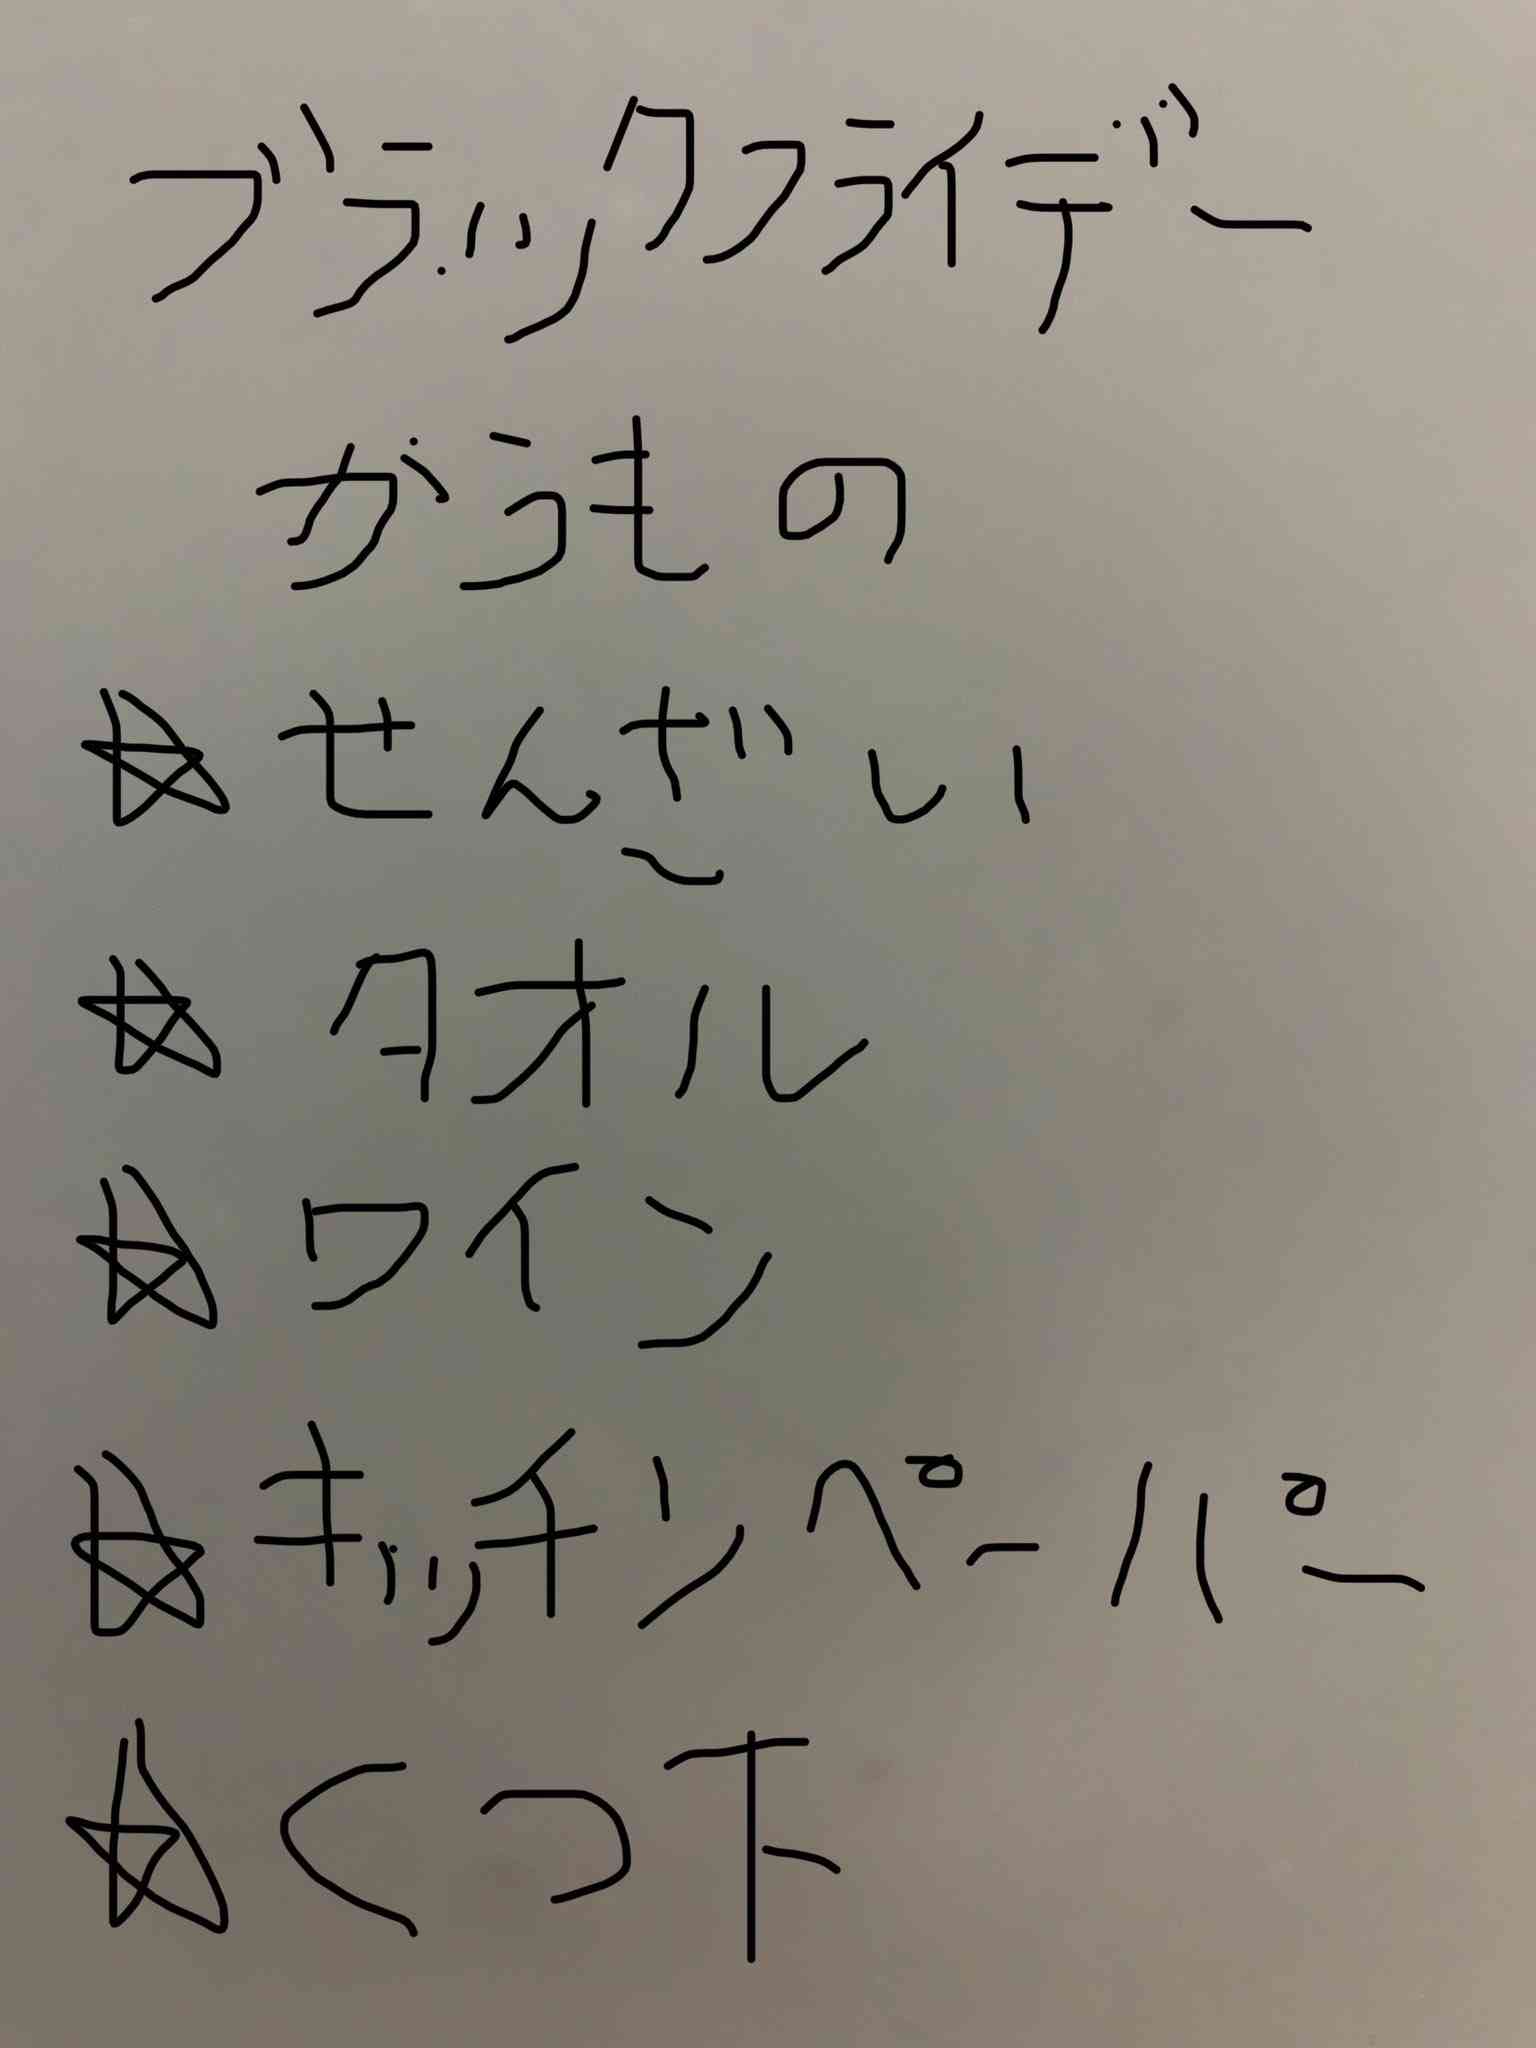 ブラックフライデー
がうもの
☆せんざい
☆タオル
☆ワイン
☆キッチンペーパー
☆くつ下